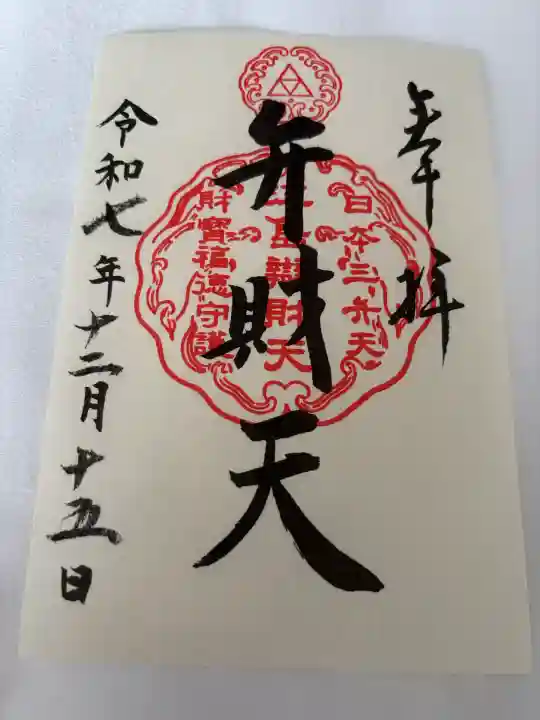 奉拝
日本三弁天
弁財天
辯財天
財寶福徳守護
令和七年十二月十五日